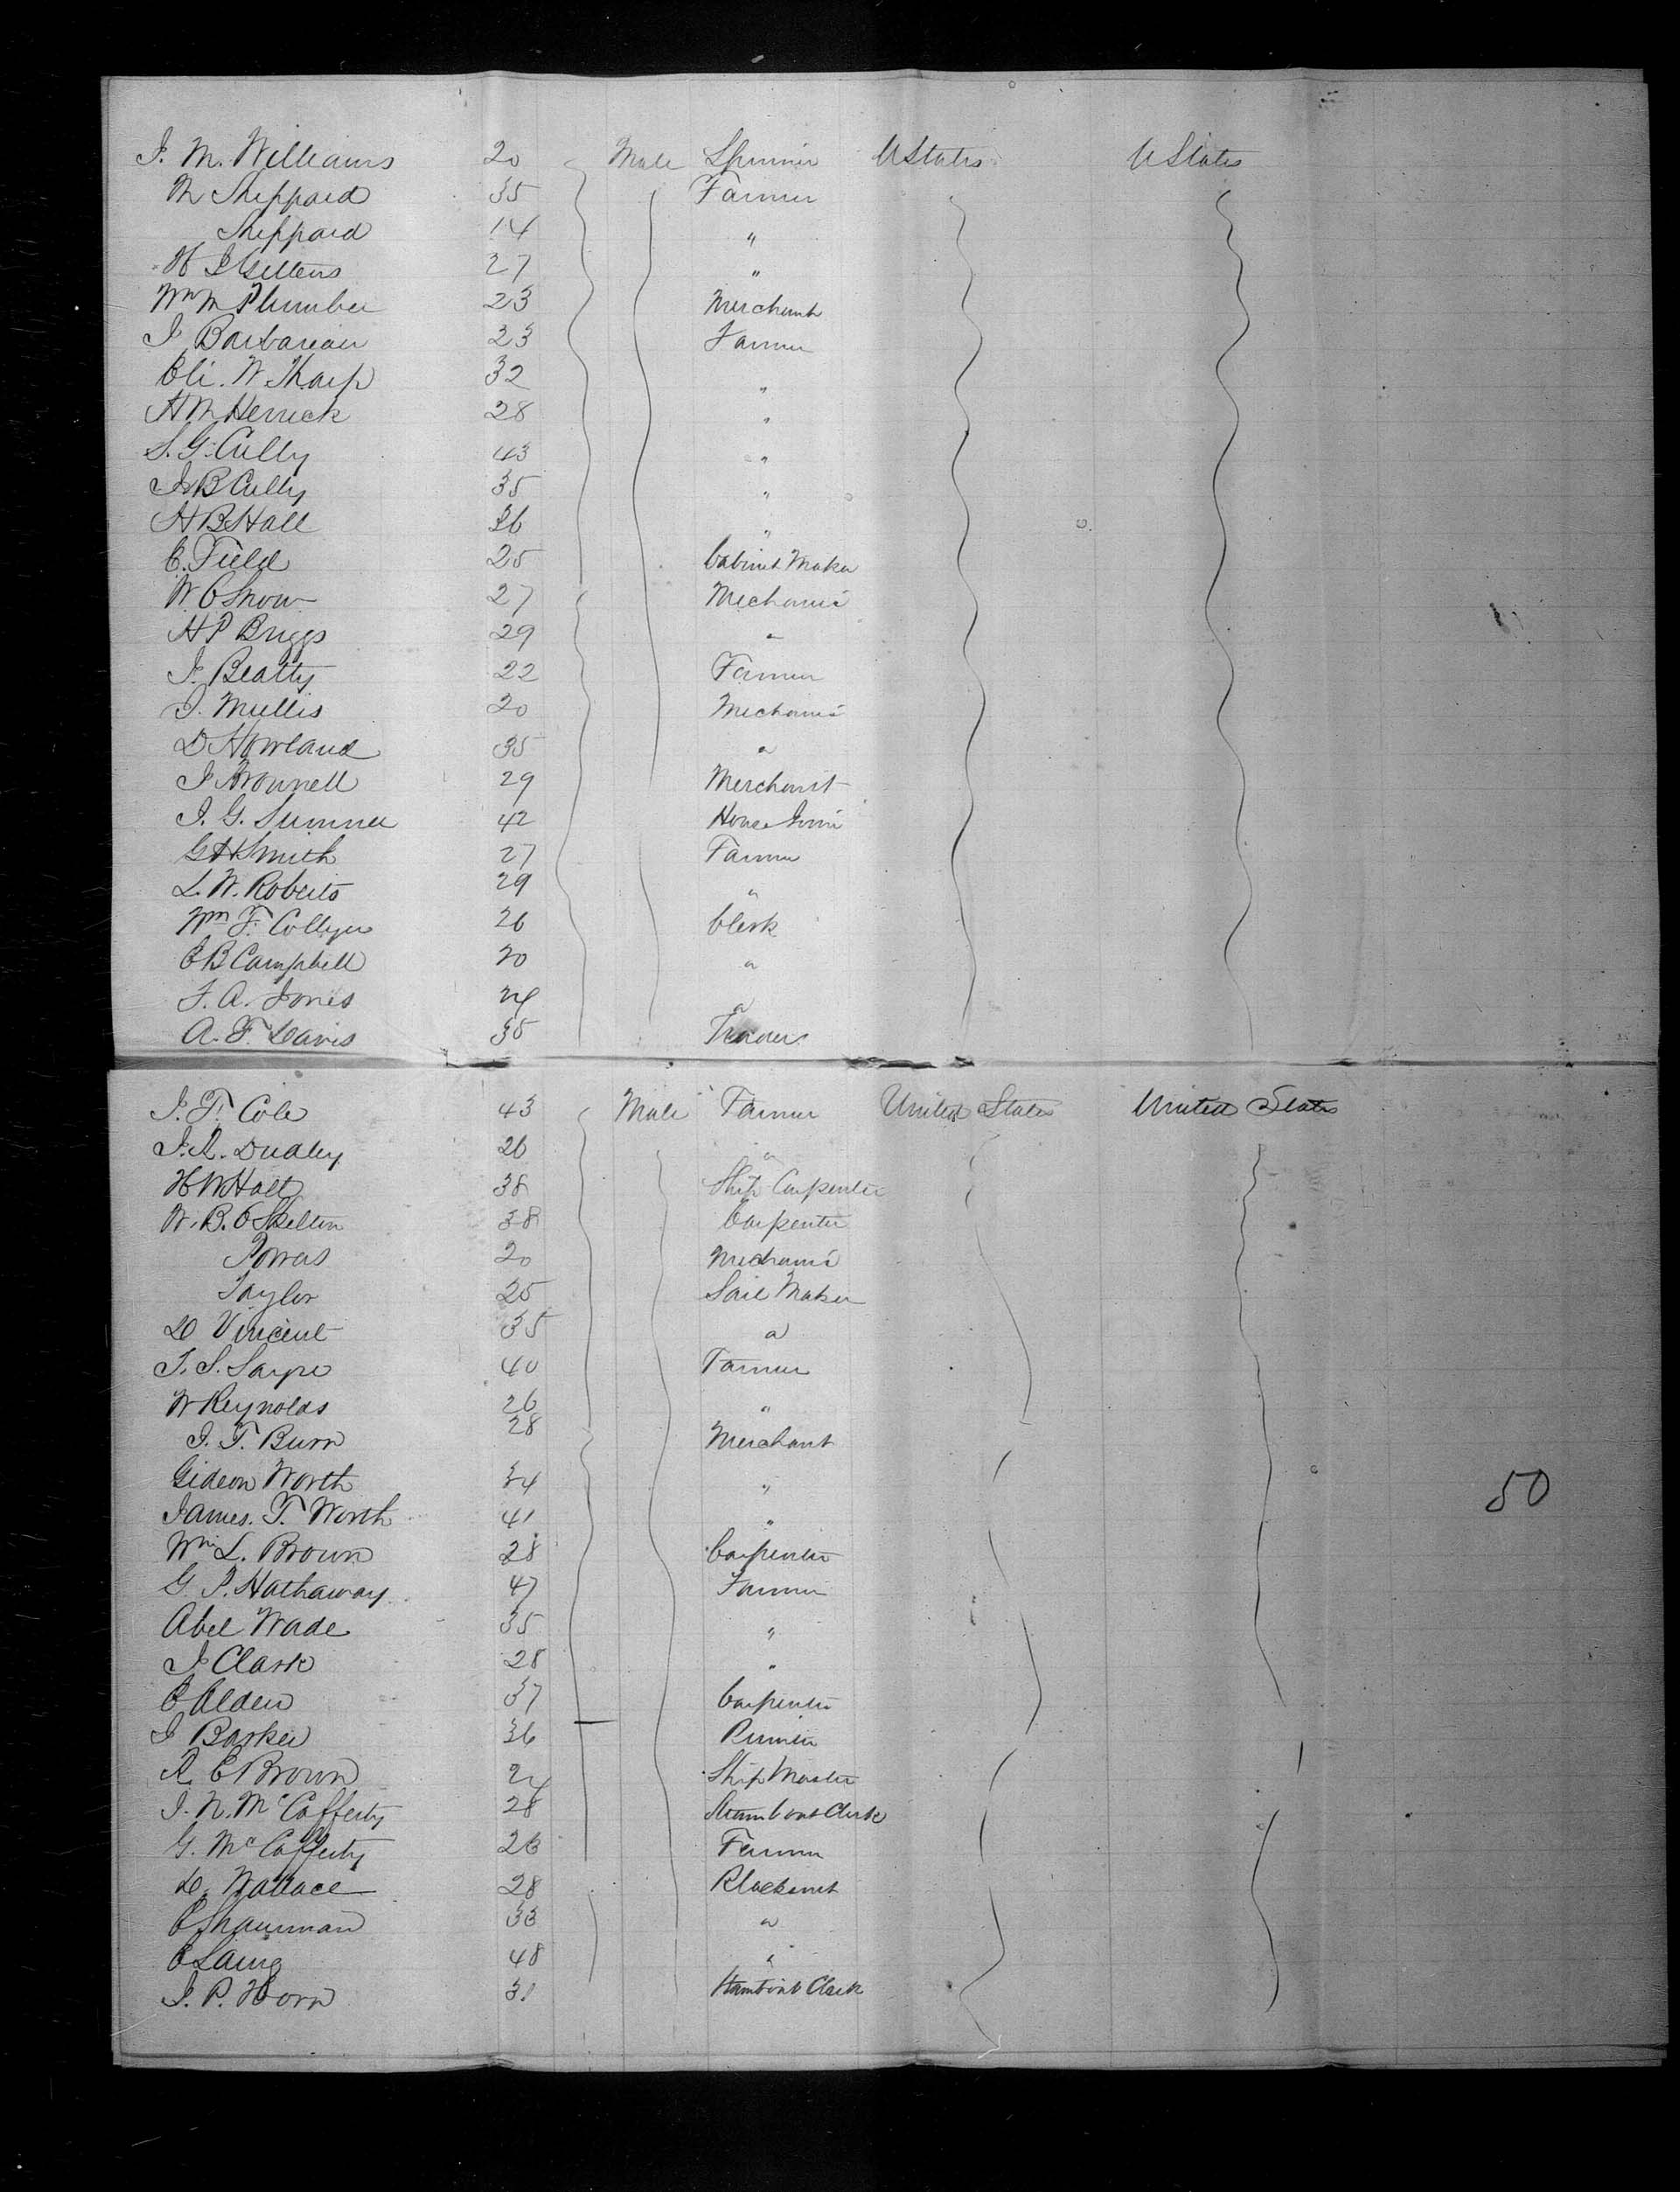 J. M. Williams 20 Male Spinner UStates UStates
M Sheppard 35 Farmer
Sheppard 14 "
H I Gettens 27 "
Wm M Plumber 23 Merchant
J Barbarean 23 Farmer
Eli. W. Tharp 32 "
H M Herrick 28 "
S. G. Cully 43 "
J B Cully 35 "
H B Hall 26 "
E. Field 25 Cabinet Maker
W. C Snow 27 Mechanic
H P Briggs 29 "
J. Beatty 22 Farmer
J. Mullis 20 Mechanic
D Howland 35 "
J Brownell 29 Merchant
J. G. Sumner 42
G H Smith 27 Farmer
L. W. Roberts 29 "
Wm F. Collyer 26 Clerk
E B Campbell 20 "
F. A. Jones 24 "
A. F. Davis 35 Trader
J. F. Cole 43 Male Farmer United States United States
J. R. Dudley 26 "
H W Holt 38 Ship Carpenter
W. B. C Skelton 38 Carpenter
Powas 20 Mechanic
Taylor 25 Sail Maker
D Vincent 35 "
T. S. Sayre 40 Farmer
W Reynolds 26 "
J. T. Burn 28 Merchant
Gideon Worth 34 "
James. T. Worth 41 "
50
Wm L. Brown 28 Carpenter
G. P. Hathaway 47 Farmer
Abel Wade 35 "
J Clark 28 "
E Alden 37 Carpenter
J Barker 36
R. C Brown 24 Ship Master
J. N. McCafferty 28 Steamboat Clerk
G. McCafferty 26 Farmer
D. Wallace 28 Blacksmit
E Shaurman 33 "
E Laing 48 "
J. P. Horn 31 Steamboat Clerk